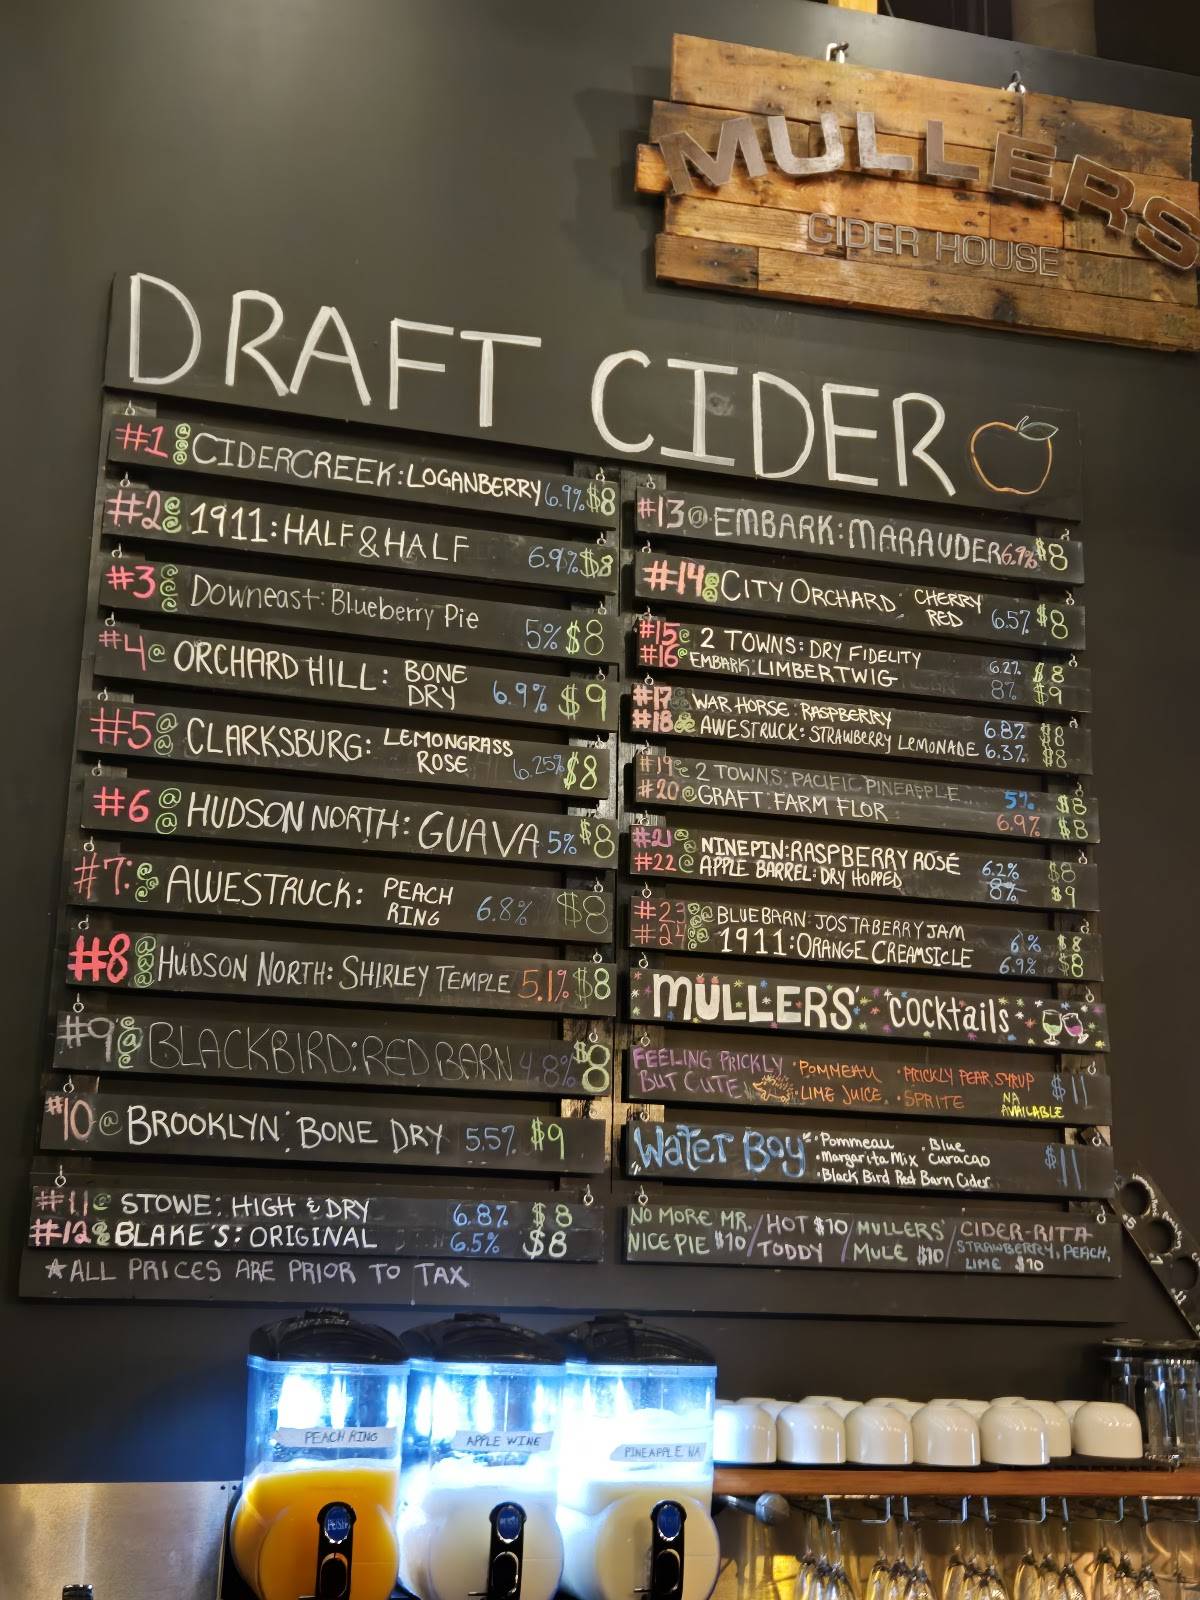 MULLERS
CIDER HOUSE
DRAFT CIDER
#1 @@@ CIDERCREEK: LOGANBERRY 6.9% $8
#2 @@ 1911: HALF & HALF 6.9% $8
#3 @@@ Downeast: Blueberry Pie 5% $8
#4 @ ORCHARD HILL: BONE DRY 6.9% $9
#5 @@ CLARKSBURG: LEMONGRASS ROSE 6.25% $8
#6 @@ HUDSON NORTH: GUAVA 5% $8
#7: @@ AWESTRUCK: PEACH RING 6.8% $8
#8 @@@ HUDSON NORTH: SHIRLEY TEMPLE 5.1% $8
#9 @@@ BLACKBIRD: RED BARN 4.8% $8
#10 @ BROOKLYN: BONE DRY 5.5% $9
#11 @ STOWE: HIGH & DRY 6.8% $8
#12 @@ BLAKE'S: ORIGINAL 6.5% $8
*ALL PRICES ARE PRIOR TO TAX
#13 @ EMBARK: MARAUDER 6.9% $8
#14 @@ CITY ORCHARD: CHERRY RED 6.5% $8
#15 @ 2 TOWNS: DRY FIDELITY 6.2% $8
#16 @ EMBARK: LIMBERTWIG 8% $9
#17 WAR HORSE: RASPBERRY 6.8% $8
#18 AWESTRUCK: STRAWBERRY LEMONADE 6.3% $8
#19 @ 2 TOWNS: PACIFIC PINEAPPLE 5% $8
#20 @ GRAFT: FARM FLOR 6.9% $8
#21 @ NINEPIN: RASPBERRY ROSÉ 6.2% $8
#22 @ APPLE BARREL: DRY HOPPED 8% $9
#23 @@ BLUEBARN: JOSTABERRY JAM 6% $8
#24 @@ 1911: ORANGE CREAMSICLE 6.9% $8
MULLERS' cocktails
FEELING PRICKLY BUT CUTE • POMMEAU • PRICKLY PEAR SYRUP • LIME JUICE • SPRITE NA AVAILABLE $11
"Water Boy" • Pommeau • Blue Curacao • Margarita Mix • Black Bird Red Barn Cider $11
NO MORE MR. NICE PIE $10 / HOT TODDY $10 / MULLERS' MULE $10 / CIDER-RITA STRAWBERRY, PEACH, LIME $10
PEACH RING
APPLE WINE
PINEAPPLE NA